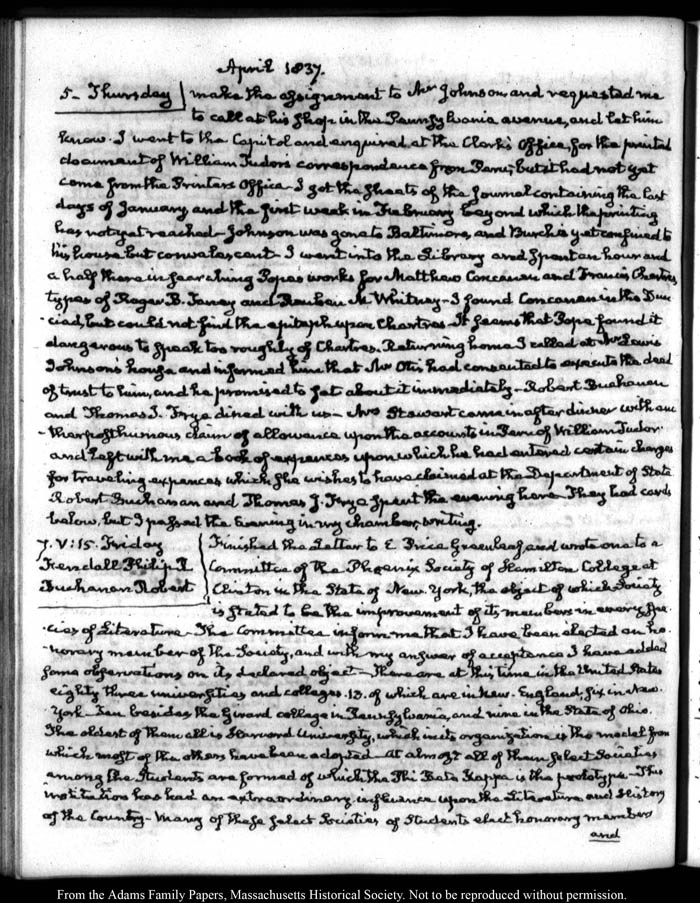 April 1837.
5- Thursday
make the assignment to Mr Johnson, and requested me
to call at his Shop in the Pennsylvania avenue, and let him
know. I went to the Capitol and enquired at the Clerk's Office, for the printed
document of William Tudor's correspondence from Peru; but it had not yet
come from the Printers Office- I got the sheets of the Journal containing the last
days of January, and the first week in February beyond which the printing
has not yet reached- Johnson was gone to Baltimore, and Burch is yet confined to
his house but convalescent- I went into the Library and spent an hour and
a half there in searching Pope's works for Matthew Concanen and Francis Chartres
types of Roger B. Taney and Reuben M. Whitney- I found Concanen in the Dun-
-ciad, but could not find the epitaph upon Chartres- It seems that Pope found it
dangerous to speak too roughly of Chartres. Returning home I called at Mr Lewis
Johnson's house and informed him that Mr Otis had consented to execute the deed
of trust to him, and he promised to set about it immediately- Robert Buchanan
and Thomas J. Frye dined with us- Mrs Stewart came in after dinner with an
-other posthumous claim of allowance upon the accounts in Peru of William Tudor.
and left with me a book of expences upon which he had entered certain charges
for traveling expences which she wishes to have claimed at the Department of State
Robert Buchanan and Thomas J. Frye spent the evening here- They had cards
below, but I passed the Evening in my chamber, writing.
7. V:15. Friday
Kendall Philip R
Buchanan Robert
Finished the Letter to E Price Greenleaf, and wrote one to a
Committee of the Phoenix Society of Hamilton College at
Clinton in the State of New York, the object of which Society
is stated to be the improvement of its members in every spe-
-cies of Literature- The Committee inform me that I have been elected an ho-
-norary member of the Society, and with my answer of acceptance I have added
some observations on its declared object- There are at this time in the United States
eighty three universities and colleges. 13. of which are in New-England, six in New-
-York- Ten besides the Girard college in Pennsylvania, and nine in the State of Ohio.
The oldest of them all is Harvard University, which in its organization is the model from
which most of the others have been adopted- At almost all of them select Societies
among the Students are formed of which the Phi Beta Kappa is the prototype- This
institution has had an extraordinary influence upon the Literature and History
of the Country- Many of these select Societies of Students elect honorary members
and
From the Adams Family Papers, Massachusetts Historical Society. Not to be reproduced without permission.